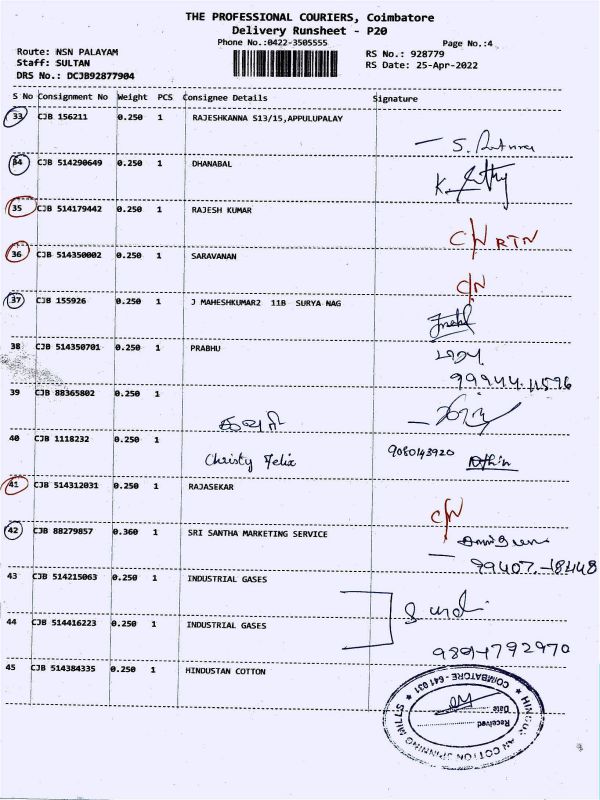 THE PROFESSIONAL COURIERS, Coimbatore
Delivery Runsheet - P20
Phone No.:0422-3505555
Page No.:4
Route: NSN PALAYAM
RS No.: 928779
Staff: SULTAN
RS Date: 25-Apr-2022
DRS No.: DCJB92877904
S No Consignment No Weight PCS Consignee Details Signature
33 CJB 156211 0.250 1 RAJESHKANNA S13/15,APPULUPALAY
34 CJB 514290649 0.250 1 DHANABAL
35 CJB 514179442 0.250 1 RAJESH KUMAR
C/N RTN
36 CJB 514350002 0.250 1 SARAVANAN
C/N
37 CJB 155926 0.250 1 J MAHESHKUMAR2 11B SURYA NAG
38 CJB 514350701 0.250 1 PRABHU
99944 11596
39 CJB 88365802 0.250 1
40 CJB 1118232 0.250 1
Christy Felix 9080143920
41 CJB 514312031 0.250 1 RAJASEKAR
C/N
42 CJB 88279857 0.360 1 SRI SANTHA MARKETING SERVICE
99407-18448
43 CJB 514215063 0.250 1 INDUSTRIAL GASES
44 CJB 514416223 0.250 1 INDUSTRIAL GASES
9894792970
45 CJB 514384335 0.250 1 HINDUSTAN COTTON
COTTON SPINNING MILLS
COIMBATORE - 641 031
Received
Date